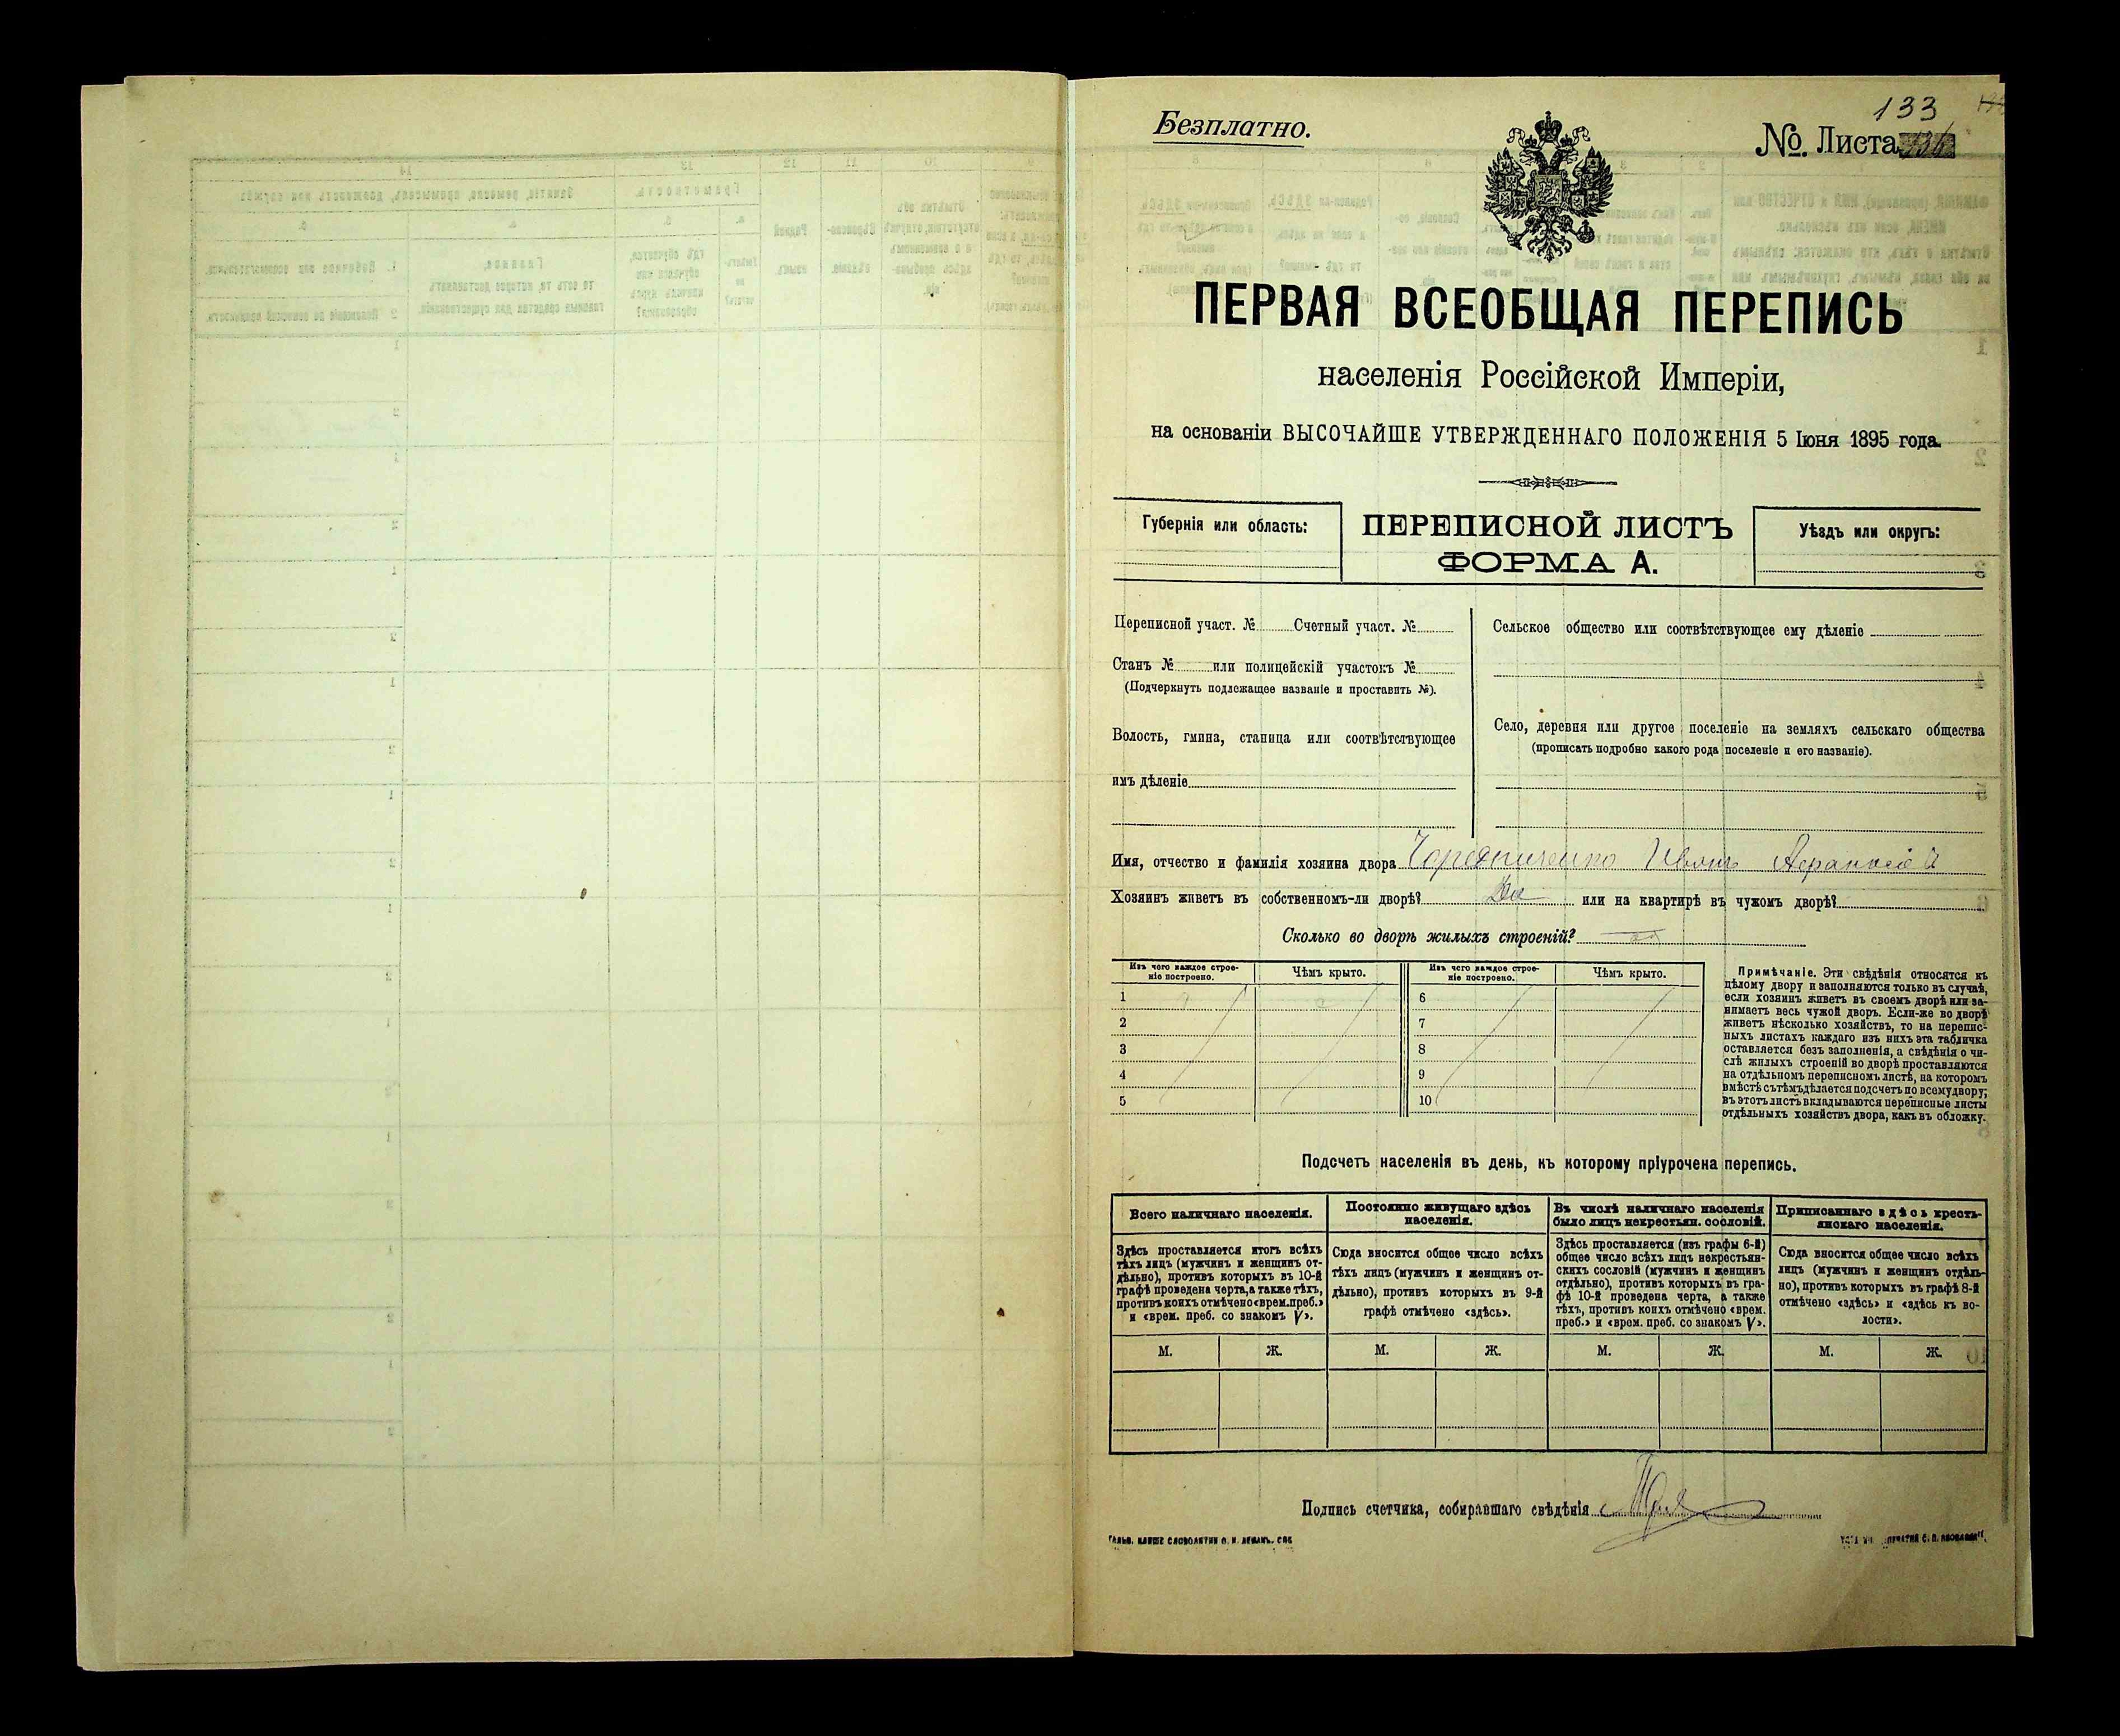 133
Безплатно.
№. Листа
ПЕРВАЯ ВСЕОБЩАЯ ПЕРЕПИСЬ
населенія Россійской Имперіи,
на основаніи ВЫСОЧАЙШЕ УТВЕРЖДЕННАГО ПОЛОЖЕНІЯ 5 Іюня 1895 года.
Губернія или область:
ПЕРЕПИСНОЙ ЛИСТЪ
ФОРМА А.
Уѣздъ или округъ:
Переписной участ. № Счетный участ. №
Станъ № или полицейскій участокъ №
(Подчеркнуть подлежащее названіе и проставить №).
Волость, гмина, станица или соотвѣтствующее
имъ дѣленіе
Сельское общество или соотвѣтствующее ему дѣленіе
Село, деревня или другое поселеніе на земляхъ сельскаго общества
(прописать подробно какого рода поселеніе и его названіе).
Имя, отчество и фамилія хозяина двора Чередниченко Иванъ
Хозяинъ живетъ въ собственномъ-ли дворѣ? Да или на квартирѣ въ чужомъ дворѣ?
Сколько во дворѣ жилыхъ строеній?
Изъ чего каждое строе-
ніе построено.
Чѣмъ крыто.
1
2
3
4
5
Изъ чего каждое строе-
ніе построено.
Чѣмъ крыто.
6
7
8
9
10
Примѣчаніе. Эти свѣдѣнія относятся къ
цѣлому двору и заполняются только въ случаѣ,
если хозяинъ живетъ въ своемъ дворѣ или за-
нимаетъ весь чужой дворъ. Если-же во дворѣ
живетъ нѣсколько хозяйствъ, то на перепис-
ныхъ листахъ каждаго изъ нихъ эта табличка
оставляется безъ заполненія, а свѣдѣнія о чи-
слѣ жилыхъ строеній во дворѣ проставляются
на отдѣльномъ переписномъ листѣ, на которомъ
вмѣстѣ съ тѣмъ дѣлается подсчетъ по всему двору;
въ этотъ листъ вкладываются переписные листы
отдѣльныхъ хозяйствъ двора, какъ въ обложку.
Подсчетъ населенія въ день, къ которому пріурочена перепись.
Всего наличнаго населенія.
Здѣсь проставляется итогъ всѣхъ
тѣхъ лицъ (мужчинъ и женщинъ от-
дѣльно), противъ которыхъ въ 10-й
графѣ проведена черта, а также тѣхъ,
противъ коихъ отмѣчено «врем. преб.»
и «врем. преб. со знакомъ V».
М. Ж.
Постоянно живущаго здѣсь
населенія.
Сюда вносится общее число всѣхъ
тѣхъ лицъ (мужчинъ и женщинъ от-
дѣльно), противъ которыхъ въ 9-й
графѣ отмѣчено «здѣсь».
М. Ж.
Въ числѣ наличнаго населенія
было лицъ некрестьян. сословій.
Здѣсь проставляется (изъ графы 6-й)
общее число всѣхъ лицъ некрестьян-
скихъ сословій (мужчинъ и женщинъ
отдѣльно), противъ которыхъ въ гра-
фѣ 10-й проведена черта, а также
тѣхъ, противъ коихъ отмѣчено «врем.
преб.» и «врем. преб. со знакомъ V».
М. Ж.
Приписаннаго здѣсь кресть-
янскаго населенія.
Сюда вносится общее число всѣхъ
лицъ (мужчинъ и женщинъ отдѣль-
но), противъ которыхъ въ графѣ 8-й
отмѣчено «здѣсь» и «здѣсь къ во-
лости».
М. Ж.
Подпись счетчика, собиравшаго свѣдѣнія